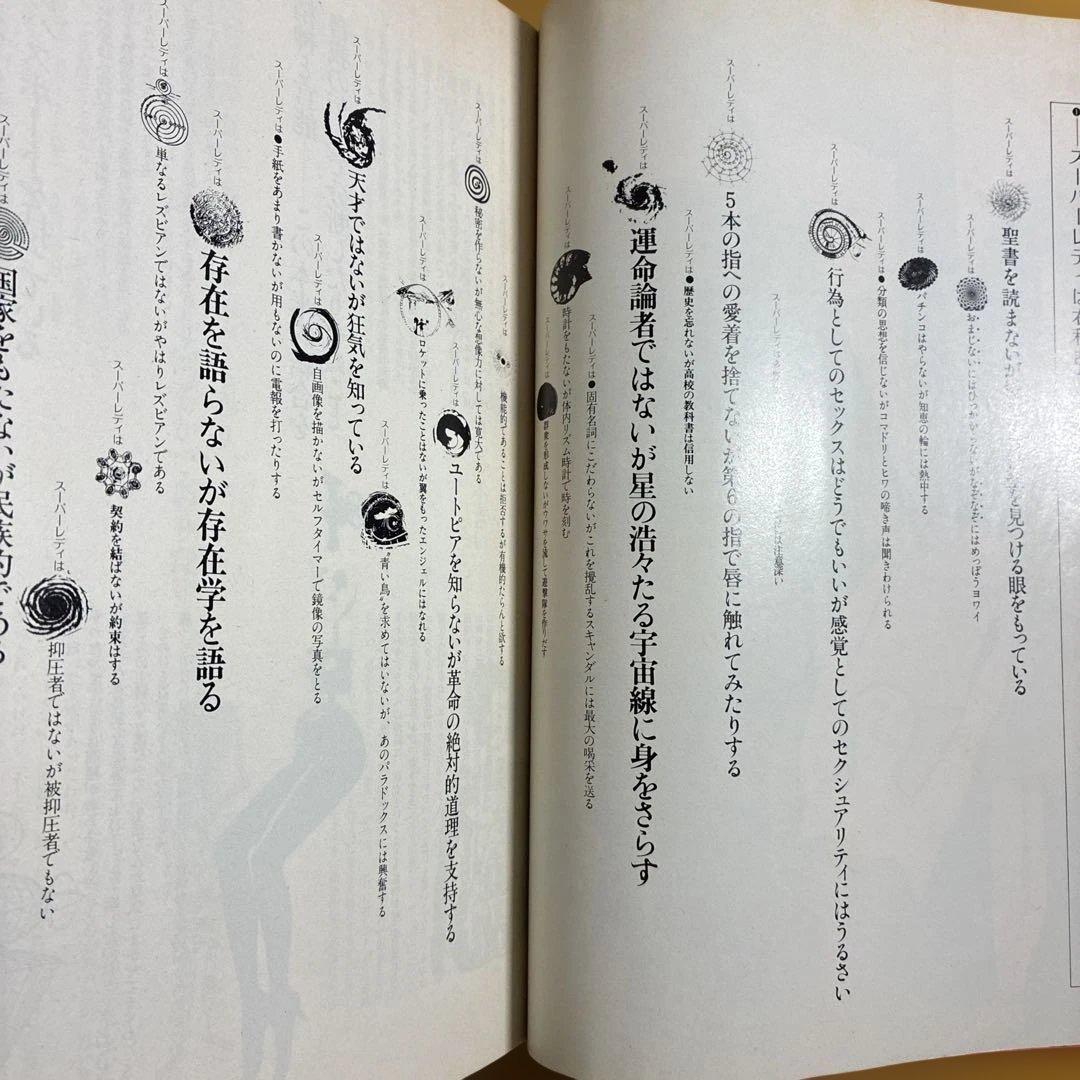 ❶
スーパーレディは
聖書を読まないが
を見つける眼をもっている
スーパーレディは
おまじないにはひっかからないがなぞなぞにはめっぽうヨワイ
スーパーレディは
パチンコはやらないが知恵の輪には熱中する
スーパーレディは●分類の思想を信じないがコマドリとヒワの啼き声は聞きわけられる
スーパーレディは
行為としてのセックスはどうでもいいが感覚としてのセクシュアリティにはうるさい
スーパーレディは
には注意深い
スーパーレディは
5本の指への愛着を捨てないが第6の指で唇に触れてみたりする
スーパーレディは●歴史を忘れないが高校の教科書は信用しない
スーパーレディは
運命論者ではないが星の浩々たる宇宙線に身をさらす
スーパーレディは●固有名詞にこだわらないがこれを攪乱するスキャンダルには最大の喝采を送る
スーパーレディは
時計をもたないが体内リズム時計で時を刻む
スーパーレディは
群衆を形成しないがウワサを流して遊撃隊を作りだす
スーパーレディは
機能的であることは拒否するが有機的たらんと欲する
スーパーレディは
秘密を作らないが無心な想像力に対しては寛大である
スーパーレディは
ユートピアを知らないが革命の絶対的道理を支持する
スーパーレディは
ロケットに乗ったことはないが翼をもったエンジェルにはなれる
スーパーレディは
“青い鳥”を求めてはいないが、あのパラドックスには興奮する
スーパーレディは
天才ではないが狂気を知っている
スーパーレディは
自画像を描かないがセルフタイマーで鏡像の写真をとる
スーパーレディは●手紙をあまり書かないが用もないのに電報を打ったりする
スーパーレディは
存在を語らないが存在学を語る
スーパーレディは
単なるレズビアンではないがやはりレズビアンである
スーパーレディは
契約を結ばないが約束はする
スーパーレディは
抑圧者ではないが被抑圧者でもない
スーパーレディは
国家をもたないが民族的である